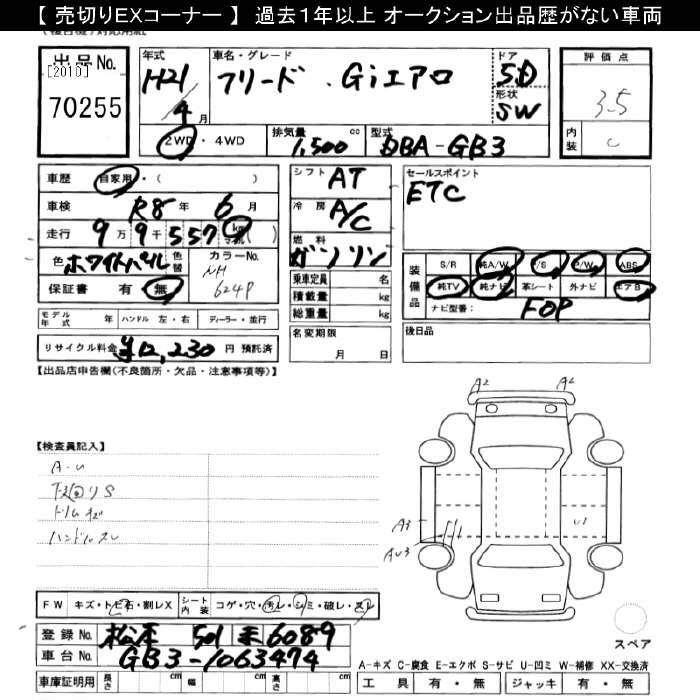 【 売切りEXコーナー 】 過去１年以上 オークション出品歴がない車両
出品No.
[2010]
70255
年式
H21
4 月
車名・グレード
フリード . Giエアロ
ドア
5D
形状
SW
評価点
3.5
内装
C
2WD ・ 4WD
排気量
1,500 cc
型式
DBA-GB3
車歴 自家用・( )
車検 R8 年 6 月
走行 9 万 9 千 557 km
色 ホワイトパール 色替
カラーNo.
NH
624P
保証書 有・無
シフト AT
冷房 A/C
燃料 ガソリン
乗車定員 名
積載量 kg
総重量 kg
セールスポイント
ETC
装備品
S/R 純A/W P/S P/W ABS
純TV 純ナビ 革シート 外ナビ エアB
ナビ型番: FOP
モデル年式 年 ハンドル 左・右 ディーラー・並行
リサイクル料金 ¥12,230 円 預託済
名変期限
月 日
後日品
【出品店申告欄(不良箇所・欠品・注意事項等)】
【検査員記入】
A-U
下廻りS
ドリムキズ
ハンドルスレ
A2 A2
A3
AU3
U1
FW キズ・トビ石・割レX
シート内装 コゲ・穴・汚レ・シミ・破レ・スレ
登録No. 松本 501 ま 6089
車台No. GB3-1063474
車庫証明用 長さ cm 幅 cm 高さ cm
スペア
A-キズ C-腐食 E-エクボ S-サビ U-凹ミ W-補修 XX-交換済
工具 有・無 ジャッキ 有・無